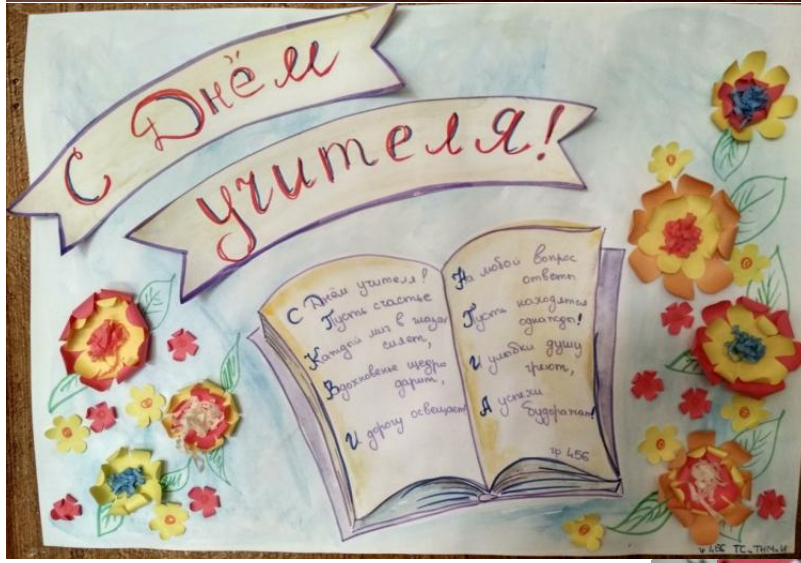 С Днём
учителя!
С Днём учителя!
Пусть счастье
Каждый миг в глазах
сияет,
Вдохновенье щедро
дарит,
И дорогу освещает!
На любой вопрос
ответы
Пусть находятся
однажды!
И улыбки душу
греют,
А успехи
будоражат!
гр 456